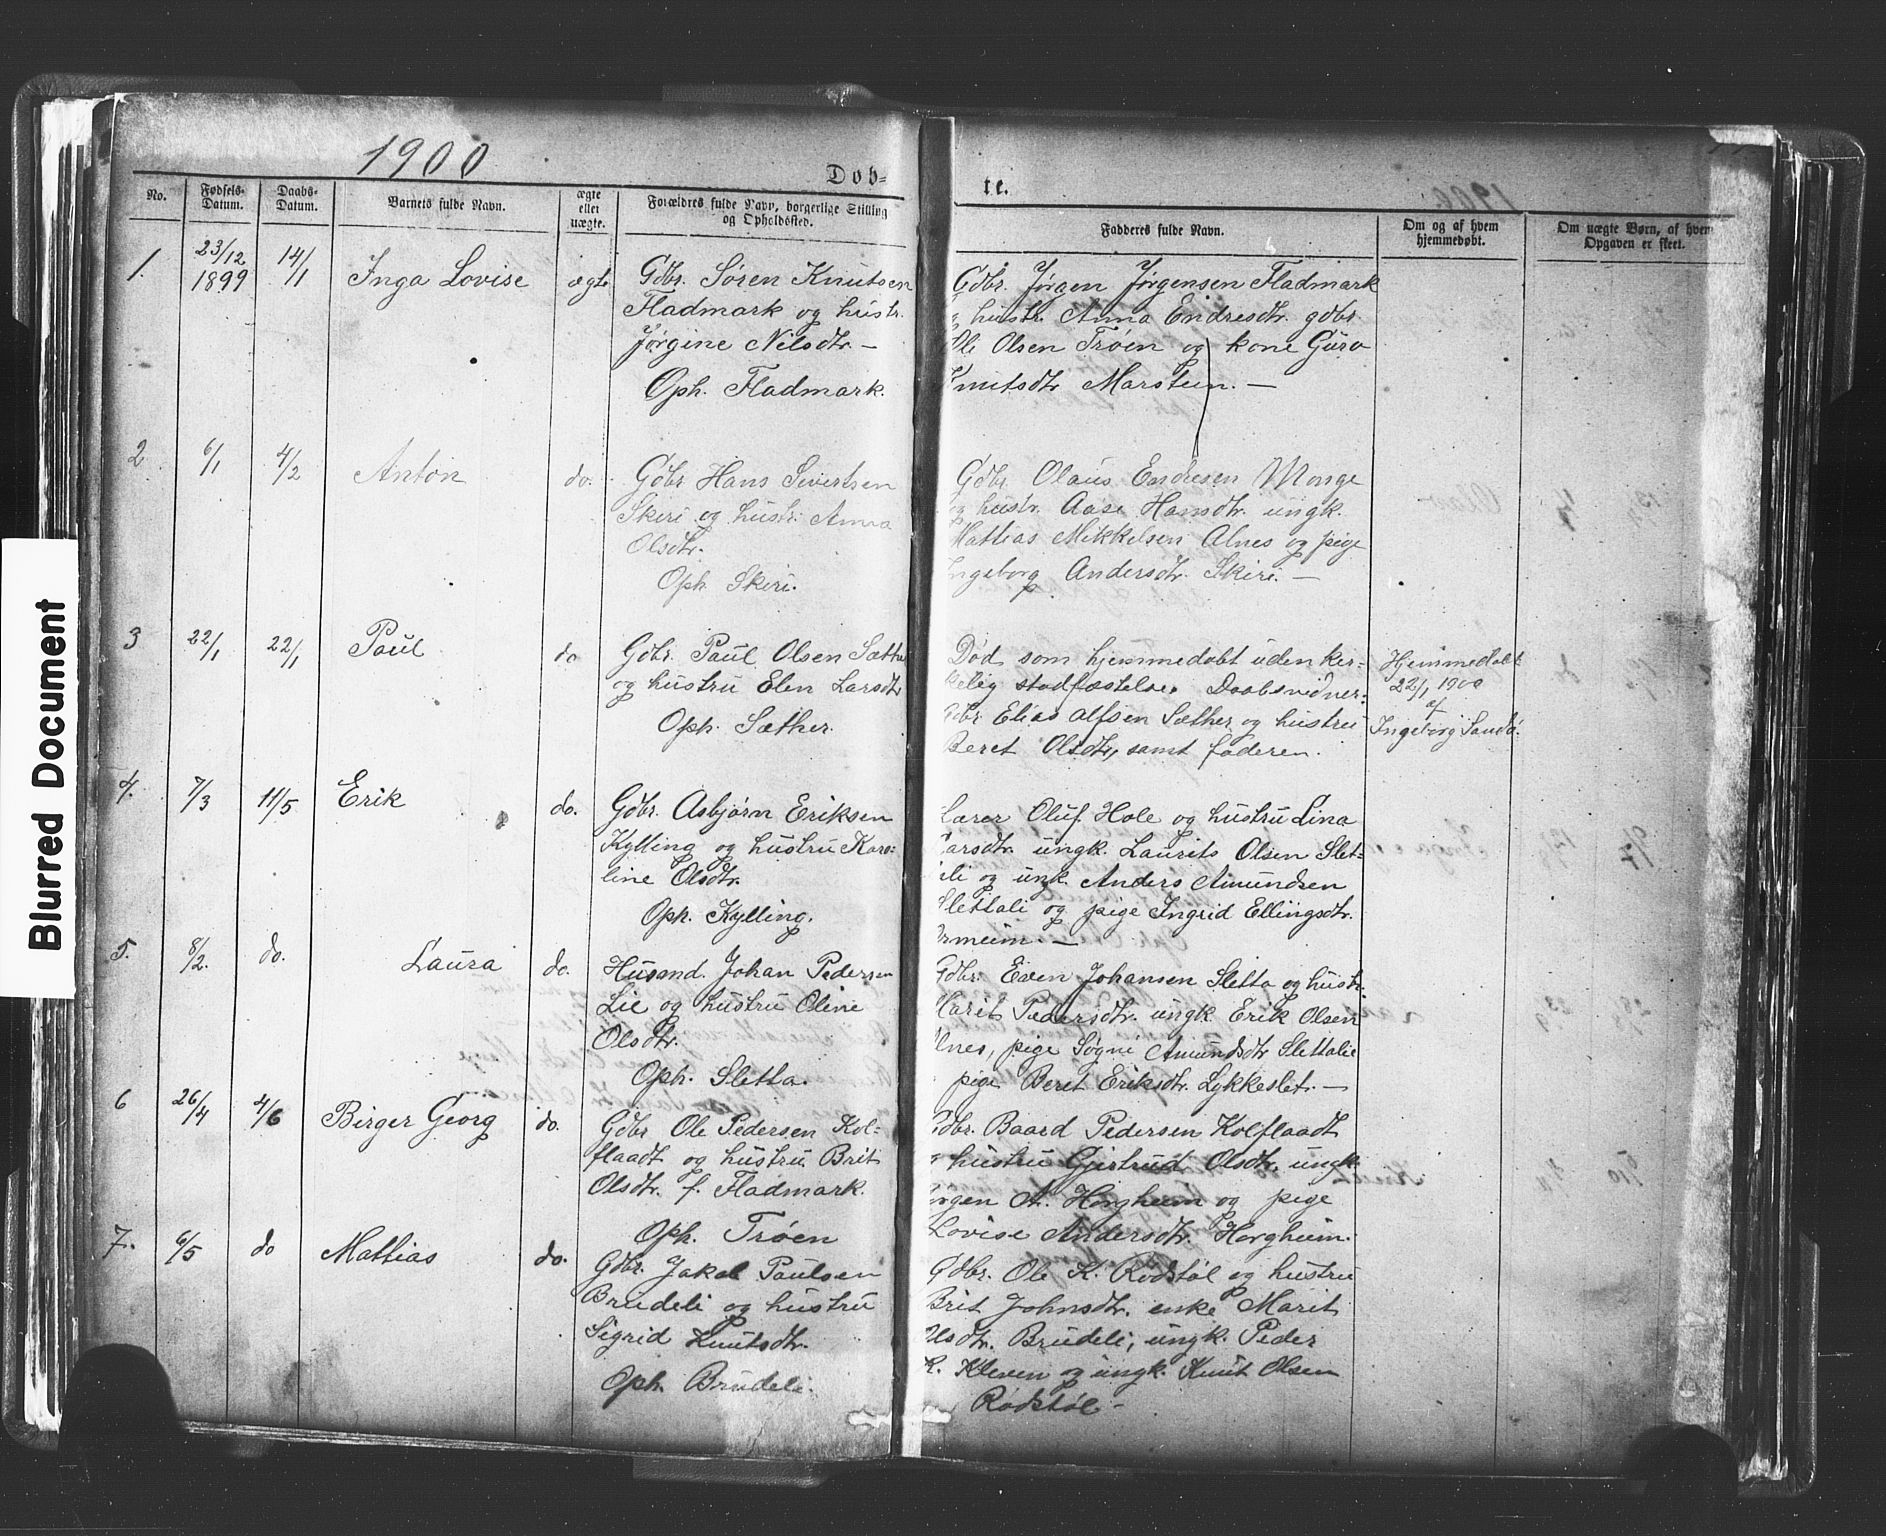 1900
Døb-
te.
No.
Fødsels-
Datum.
Daabs-
Datum.
Barnets fulde Navn.
ægte
eller
uægte.
Forældres fulde Navn, borgerlige Stilling
og Opholdssted.
Fadderes fulde Navn.
Om og af hvem
hjemmedøbt.
Om uægte Børn, af hvem
Opgaven er skeet.
1.
23/12
1899
14/1
Inga Lovise
ægte
Gdbr. Søren Knutsen
Fladmark og hustr.
Jørgine Nilsdtr. —
Oph. Fladmark.
Gdbr. Jørgen Jørgensen Fladmark
hustr. Anna Endresdtr. gdbr.
Ole Olsen Trøen og kone Guro
Knutsdtr Marstein. —
2
6/1
4/2
Anton
do.
Gdbr Hans Sivertsen
Skiri og hustr. Anna
Olsdtr.
Oph. Skiri.
Gdbr. Olaus Endresen Monge
og hustr. Aase Hansdtr. ungk.
Mattias Mikkelsen Alnes og pige
Ingeborg Andersdtr. Skiri. —
3
22/1
22/1
Paul
do
Gdbr. Paul Olsen Sæther
og hustru Elen Larsdtr
Oph. Sæther.
Død som hjemmedøbt uden kir-
kelig stadfæstelse. Daabsvidner:
Gdbr. Elias Alfsen Sæther og hustru
Beret Olsdtr, samt faderen.
Hjemmedøbt
22/1 1900
af
Ingeborg Sandø.
4.
7/3
11/5
Erik
do.
Gdbr. Asbjørn Eriksen
Kylling og hustru Karo-
line Olsdtr.
Oph. Kylling.
Lærer Oluf Hole og hustru Lina
Larsdtr. ungk. Laurits Olsen Slet-
tali og ungk. Anders Amundsen
Slettali og pige Ingrid Ellingsdtr.
Ormeim. —
5.
8/2.
do.
Laura
do.
Husmd. Johan Pedersen
Lie og hustru Oline
Olsdtr.
Oph. Sletta.
Gdbr. Even Johansen Sletta og hustr.
Marit Pedersdtr. ungk. Erik Olsen
Alnes, pige Søgni Amundsdtr Slettalie
pige Beret Eriksdtr. Lykkeslet. —
6
26/4
4/6
Birger Georg
do.
Gdbr Ole Pedersen Kol-
flaadt og hustru Brit
Olsdtr. f. Fladmark.
Oph. Trøen
Gdbr. Baard Pedersen Kolflaadt
og hustru Gjertrud Olsdtr. ungk
Jørgen A. Horgheim og pige
Lovise Andersdtr. Horgheim.
7.
6/5
do
Mattias
do.
Gdbr. Jakob Paulsen
Brudeli og hustru
Sigrid Knutsdtr.
Oph. Brudeli.
Gdbr. Ole K. Rødstøl og hustru
Brit Johnsdtr. enke Marit
Olsdtr. Brudeli, ungk. Peder
K. Kleven og ungk. Knut Olsen
Rødstøl —
Blurred Document